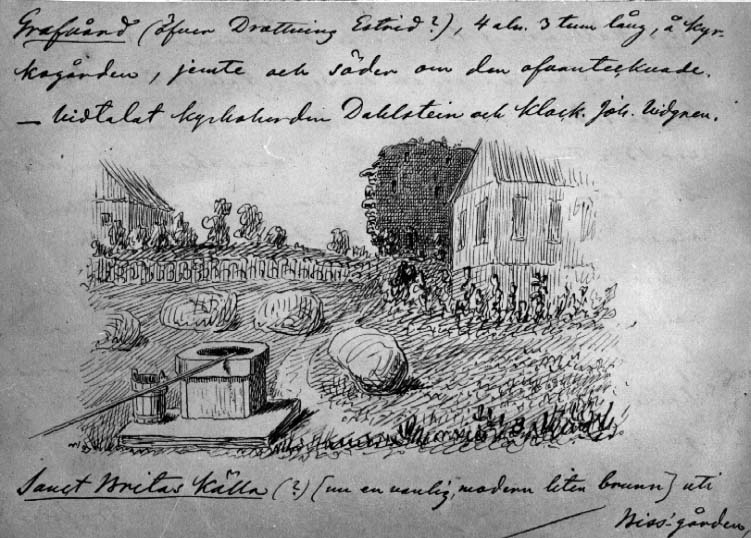 Grafvård (öfver Drottning Estrid?), 4 aln. 3 tum lång, å kyr-
kogården, jemte och söder om den ofvantecknade.
— Vidtalat kyrkoherden Dahlstein och klock. Joh. Vidgren.
Sanct Britas Källa (?) [nu en vanlig, modern liten brunn] uti
Biss-gården,